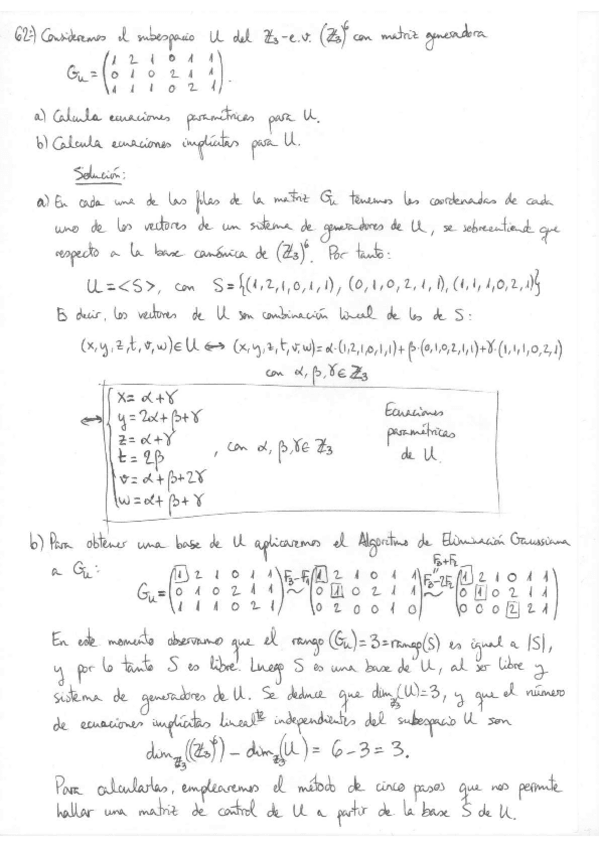 62º) Consideremos el subespacio U del ℤ₃-e.v. (ℤ₃)⁶ con matriz generadora
G_u = (1 2 1 0 1 1
0 1 0 2 1 1
1 1 1 0 2 1).
a) Calcula ecuaciones paramétricas para U.
b) Calcula ecuaciones implícitas para U.
Solución:
a) En cada una de las filas de la matriz G_u tenemos las coordenadas de cada
uno de los vectores de un sistema de generadores de U, se sobreentiende que
respecto a la base canónica de (ℤ₃)⁶. Por tanto:
U = <S>, con S = {(1,2,1,0,1,1), (0,1,0,2,1,1), (1,1,1,0,2,1)}
Es decir, los vectores de U son combinación lineal de los de S:
(x,y,z,t,v,w)∈U ↔ (x,y,z,t,v,w)=α·(1,2,1,0,1,1)+β·(0,1,0,2,1,1)+γ·(1,1,1,0,2,1)
con α,β,γ∈ℤ₃
↔ { x= α+γ
y=2α+β+γ
z=α+γ
t=2β
v=α+β+2γ
w=α+β+γ
, con α,β,γ∈ℤ₃
Ecuaciones
paramétricas
de U.
b) Para obtener una base de U aplicaremos el Algoritmo de Eliminación Gaussiana
a G_u:
G_u = (1 2 1 0 1 1
0 1 0 2 1 1
1 1 1 0 2 1) F₃-F₁ ~ (1 2 1 0 1 1
0 1 0 2 1 1
0 2 0 0 1 0) F₃+F₂ = F₃-2F₂ ~ (1 2 1 0 1 1
0 1 0 2 1 1
0 0 0 2 2 1)
En este momento observamos que el rango(G_u)=3=rango(S) es igual a |S|,
y por lo tanto S es libre. Luego S es una base de U, al ser libre y
sistema de generadores de U. Se deduce que dim_ℤ₃(U)=3, y que el número
de ecuaciones implícitas linealᵗᵉ independientes del subespacio U son
dim_ℤ₃((ℤ₃)⁶) - dim_ℤ₃(U) = 6-3 = 3.
Para calcularlas, emplearemos el método de cinco pasos que nos permite
hallar una matriz de control de U a partir de la base S de U.